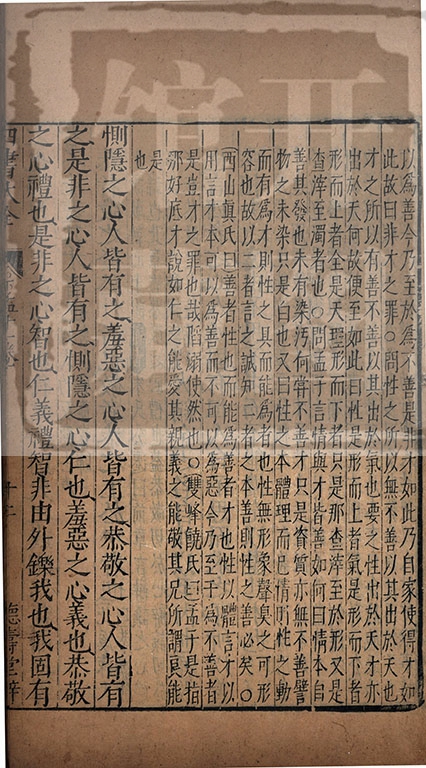 以爲善今乃至於爲不善是非才如此乃自家使得才如
此故曰非才之罪○問性之所以無不善以其出於天也
才之所以有善不善以其出於氣也要之性出於天才亦
出於天何故便至如此曰性是形而上者氣是形而下者
形而上者全是天理形而下者只是那查滓至於形又是
查滓至濁者也○問孟子言情與才皆善如何曰情本自
善其發也未有染污何甞不善才只是資質亦無不善譬
物之未染只是白也又曰性之本體理而已情則性之動
而有爲才則性之具而能爲者也性無形象聲臭之可形
容也故以二者言之誠知二者之本善則性之善必矣○
西山眞氏曰善者性也而能爲善者才也性以體言才以
用言才本可以爲善而不可以爲惡今乃至于爲不善者
是豈才之罪也哉陷溺使然也○雙峰饒氏曰孟子是指
那好底才說如仁之能愛其親義之能敬其兄所謂良能
是
也
惻隱之心人皆有之羞惡之心人皆有之恭敬之心人皆有
之是非之心人皆有之惻隱之心仁也羞惡之心義也恭敬
之心禮也是非之心智也仁義禮智非由外鑠我也我固有
四書大全